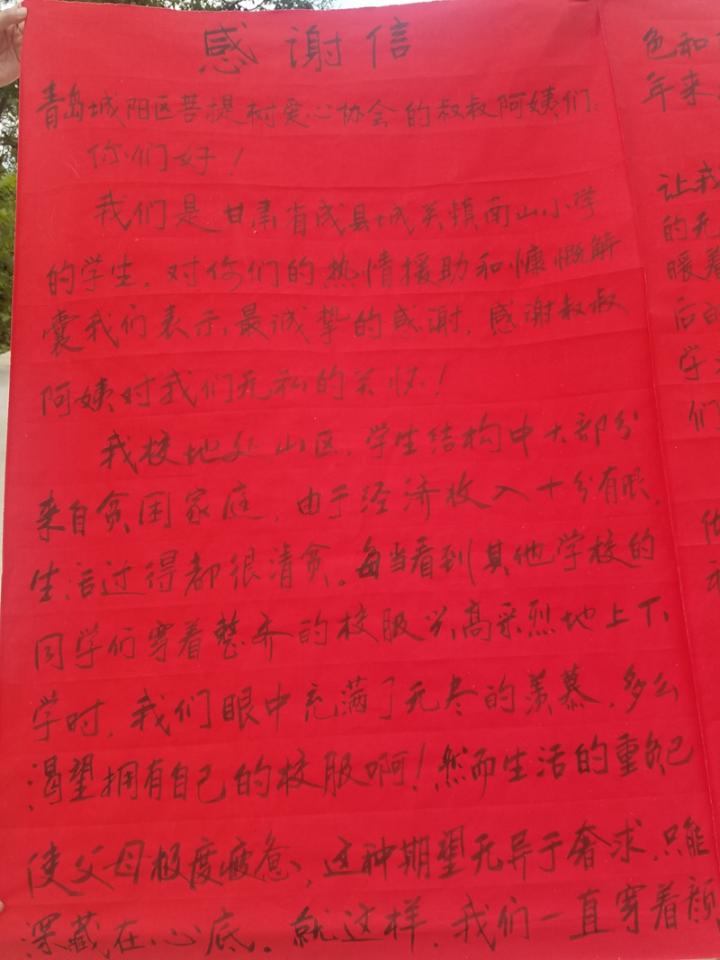 感谢信
青岛城阳区菩提树爱心协会的叔叔阿姨们:
你们好!
我们是甘肃省成县城关镇南山小学
的学生,对你们的热情援助和慷慨解
囊我们表示最诚挚的感谢,感谢叔叔
阿姨对我们无私的关怀!
我校地处山区,学生结构中大部分
来自贫困家庭,由于经济收入十分有限,
生活过得都很清贫。每当看到其他学校的
同学们穿着整齐的校服兴高采烈地上下
学时,我们眼中充满了无尽的羡慕,多么
渴望拥有自己的校服啊!然而生活的重负已
使父母极度疲惫,这种期望无异于奢求,只能
深藏在心底。就这样,我们一直穿着颜
色和
年来
让我
的无
暖着
后的
学
们